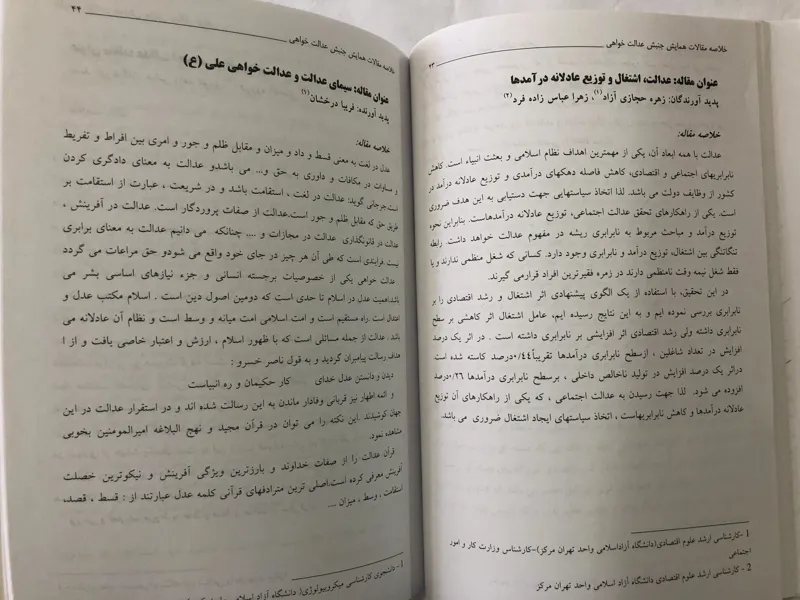 خلاصه مقالات همایش جنبش عدالت خواهی
۴۳
عنوان مقاله: عدالت، اشتغال و توزیع عادلانه درآمدها
پدید آورندگان: زهره حجازی آزاد(۱)، زهرا عباس زاده فرد(۲)
خلاصه مقاله:
عدالت با همه ابعاد آن، یکی از مهمترین اهداف نظام اسلامی و بعثت انبیاء است. کاهش
نابرابریهای اجتماعی و اقتصادی، کاهش فاصله دهکهای درآمدی و توزیع عادلانه درآمد در
کشور از وظایف دولت می باشد. لذا اتخاذ سیاستهایی جهت دستیابی به این هدف ضروری
است. یکی از راهکارهای تحقق عدالت اجتماعی، توزیع عادلانه درآمدهاست. بنابراین نحوه
توزیع درآمد و مباحث مربوط به نابرابری ریشه در مفهوم عدالت خواهد داشت. رابطه
تنگاتنگی بین اشتغال، توزیع درآمد و نابرابری وجود دارد. کسانی که شغل منظمی ندارند و یا
فقط شغل نیمه وقت نامنظمی دارند در زمره فقیرترین افراد قرارمی گیرند.
در این تحقیق، با استفاده از یک الگوی پیشنهادی اثر اشتغال و رشد اقتصادی را بر
نابرابری بررسی نموده ایم و به این نتایج رسیده ایم، عامل اشتغال اثر کاهشی بر سطح
نابرابری داشته ولی رشد اقتصادی اثر افزایشی بر نابرابری داشته است . در اثر یک درصد
افزایش در تعداد شاغلین ، ازسطح نابرابری درآمدها تقریباً ۰/۴۴درصد کاسته شده است
دراثر یک درصد افزایش در تولید ناخالص داخلی ، برسطح نابرابری درآمدها ۰/۲۶درصد
افزوده می شود. لذا جهت رسیدن به عدالت اجتماعی ، که یکی از راهکارهای آن توزیع
عادلانه درآمدها و کاهش نابرابریهاست ، اتخاذ سیاستهای ایجاد اشتغال ضروری می باشد.
1 -کارشناسی ارشد علوم اقتصادی(دانشگاه آزاداسلامی واحد تهران مرکز)-کارشناس وزارت کار و امور
اجتماعی
2 - کارشناسی ارشد علوم اقتصادی دانشگاه آزاد اسلامی واحد تهران مرکز
۴۴
خلاصه مقالات همایش جنبش عدالت خواهی
عنوان مقاله: سیمای عدالت و عدالت خواهی علی (ع)
پدید آورنده: فریبا درخشان(۱)
خلاصه مقاله:
عدل در لغت به معنی قسط و داد و میزان و مقابل ظلم و جور و امری بین افراط و تفریط
و مساوات در مکافات و داوری به حق و... می باشدو عدالت به معنای دادگری کردن
است.جرجانی گوید: عدالت در لغت ، استقامت باشد و در شریعت ، عبارت از استقامت بر
طریق حق که مقابل ظلم و جور است.عدالت از صفات پروردگار است. عدالت در آفرینش ،
عدالت در قانونگذاری عدالت در مجازات و .... چنانکه می دانیم عدالت به معنای برابری
نیست فرایندی است که طی آن هر چیز در جای خود واقع می شودو حق مراعات می گردد
عدالت خواهی یکی از خصوصیات برجسته انسانی و جزء نیازهای اساسی بشر می
باشد.اهمیت عدل در اسلام تا حدی است که دومین اصول دین است . اسلام مکتب عدل و
اعتدال است. راه مستقیم است و امت اسلامی امت میانه و وسط است و نظام آن عادلانه می
باشد. عدالت از جمله مسائلی است که با ظهور اسلام ، ارزش و اعتبار خاصی یافت و از ا
هداف رسالت پیامبران گردید و به قول ناصر خسرو :
دیدن و دانستن عدل خدای کار حکیمان و ره انبیاست
و ائمه اطهار نیز قربانی وفادار ماندن به این رسالت شده اند و در استقرار عدالت در این
جهان کوشیدند .این نکته را می توان در قرآن مجید و نهج البلاغه امیرالمومنین بخوبی
مشاهده نمود.
قرآن عدالت را از صفات خداوند و بارزترین ویژگی آفرینش و نیکوترین خصلت
آفرینش معرفی کرده است.اصلی ترین مترادفهای قرآنی کلمه عدل عبارتند از : قسط ، قصد،
استقامت ، وسط ، میزان ....
1- دانشجوی کارشناسی میکروبیولوژی( دانشگاه آزاد اسلامی